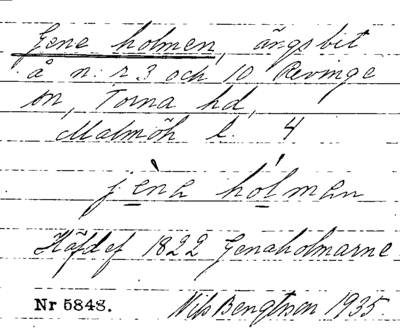 Jene holmen, ängsbit
å n:r 3 och 10 Revinge
sn, Torna hd,
Malmöh l. 4
jèna hólman
Häfd ef 1822 Jenaholmarne
Nr 5848. Nils Bengtson 1935.